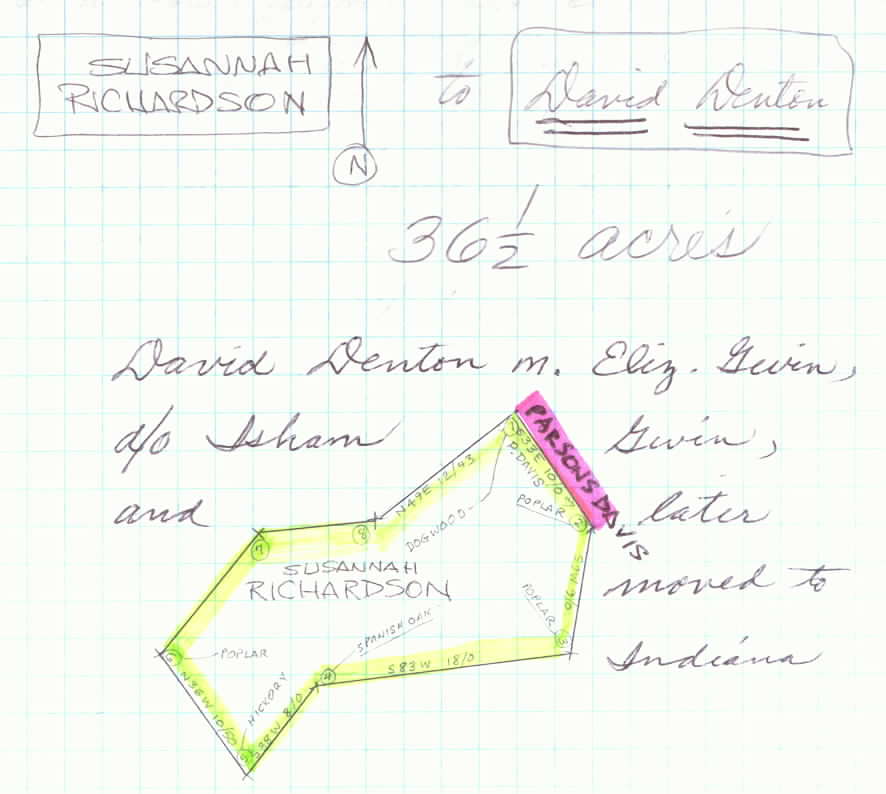 SUSANNAH
RICHARDSON
N
to
David Denton
36 1/2 acres
David Denton m. Eliz. Gwin,
d/o Isham Gwin,
and later
moved to
Indiana
PARSONS DAVIS
S33E 10/0
P. DAVIS
POPLAR
2
N49E 12/43
DOGWOOD
8
7
SUSANNAH
RICHARDSON
POPLAR
3
SPANISH OAK
4
S83W 18/0
6
POPLAR
HICKORY
N36W 10/50
S38W 8/0
5